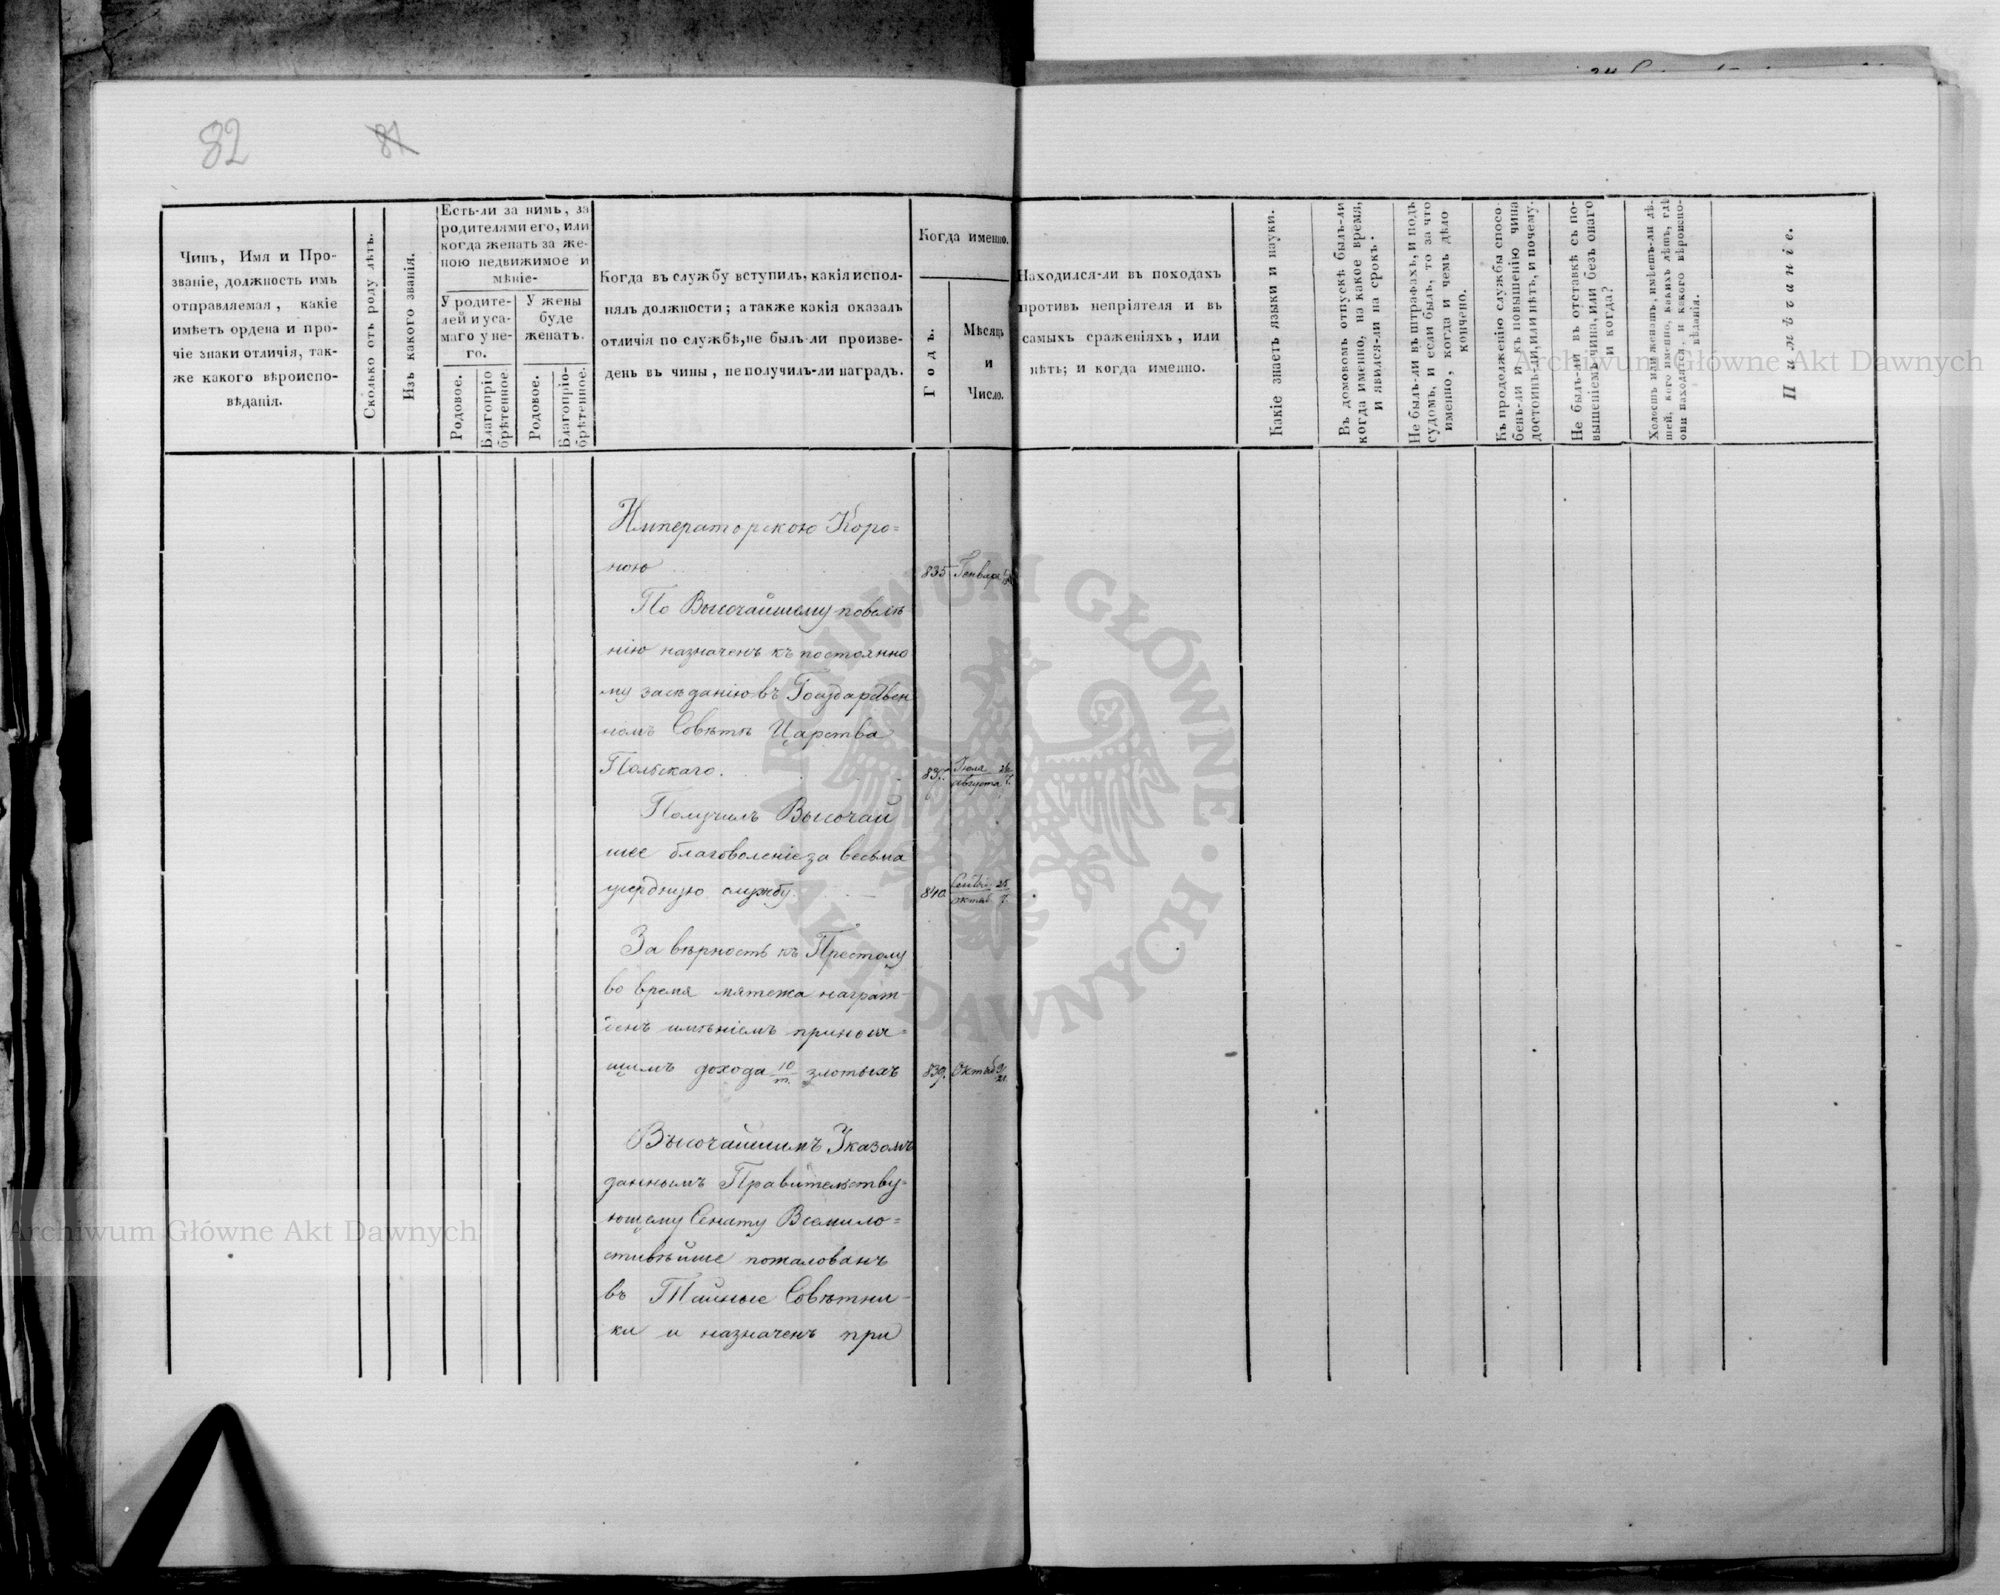 82
81
Чинъ, Имя и Про-
званіе, должность имъ
отправляемая, какіе
имѣетъ ордена и про-
чіе знаки отличія, так-
же какого вѣроиспо-
вѣданія.
Сколько отъ роду лѣтъ.
Изъ какого званія.
Есть-ли за нимъ, за
родителями его, или
когда женатъ за же-
ною недвижимое и
мѣніе-
У родите-
лей и у са-
маго у не-
го.
У жены
буде
женатъ.
Родовое.
Благопріо
брѣтенное.
Родовое.
Благопріо-
брѣтенное.
Когда въ службу вступилъ, какія испол-
нялъ должности; а также какія оказалъ
отличія по службѣ, не былъ-ли произве-
денъ въ чины, не получилъ-ли наградъ.
Когда именно.
Годъ.
Мѣсяцъ
и
Число.
Находился-ли въ походахъ
противъ непріятеля и въ
самыхъ сраженіяхъ, или
нѣтъ; и когда именно.
Какіе знаетъ языки и науки.
Въ домовомъ отпускѣ былъ-ли
когда именно, на какое время,
и явился-ли на срокъ.
Не былъ-ли въ штрафахъ, и подъ
судомъ, и если былъ, то за что
именно, когда и чемъ дѣло
кончено.
Къ продолженію службы спосо-
бенъ-ли и къ повышенію чина
достоинъ-ли, или нѣтъ, и почему.
Не былъ-ли въ отставкѣ съ по-
вышеніемъ чина, или безъ онаго
и когда?
Холостъ или женатъ, имѣетъ-ли дѣ-
тей, кого именно, какихъ лѣтъ, гдѣ
они находятся, и какого вѣроиспо-
вѣданія.
Примѣчаніе.
Императорскою Коро=
ною 835 Генваря
По Высочайшему повелѣ
нію назначенъ къ постоянно
му засѣданію въ Государствен
номъ Совѣтѣ Царства
Польскаго. 837. Іюля 26/Августа 7.
Получилъ Высочай
шее благоволеніе за весьма
усердную службу. 840. Сентяб. 25/Октяб. 7.
За вѣрность къ Престолу
во время мятежа награж-
денъ имѣніемъ принося=
щимъ дохода 10/т. злотыхъ 839. Октяб 9/21.
Высочайшимъ Указомъ
даннымъ Правительству=
ющему Сенату Всемило=
стивѣйше пожалованъ
въ Тайные Совѣтни-
ки и назначенъ при
Archiwum Główne Akt Dawnych
Archiwum Główne Akt Dawnych
ARCHIWUM GŁÓWNE • AKT DAWNYCH